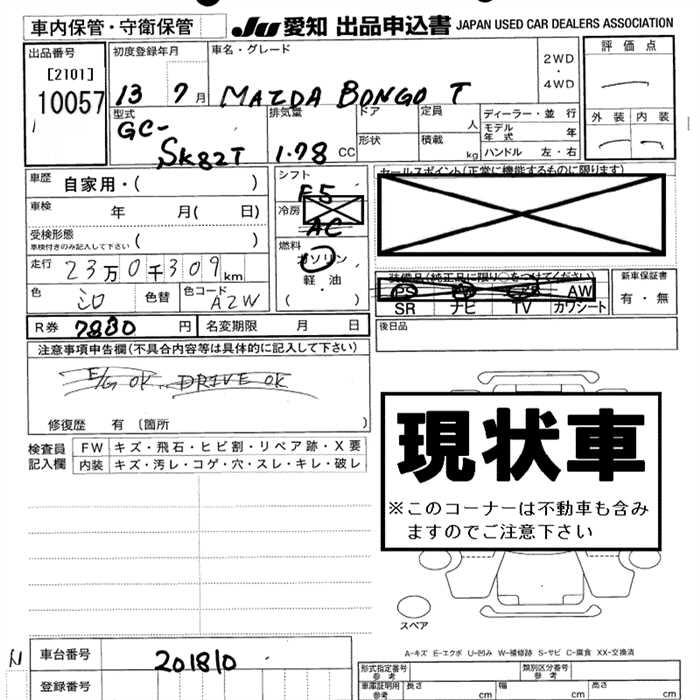 車内保管・守衛保管
JU 愛知 出品申込書 JAPAN USED CAR DEALERS ASSOCIATION
出品番号
[2101]
10057
初度登録年月
13 7月
車名・グレード
MAZDA BONGO T
2WD
・
4WD
評価点
外装 内装
型式
GC-
SK82T
排気量
1.78 CC
ドア
定員
人
形状
積載
kg
ディーラー・並行
モデル年式 年
ハンドル 左・右
車歴 自家用・( )
車検 年 月( 日)
受検形態
車検付きのみ記入して下さい ( )
走行 23万0千309km
色 シロ 色替 色コード A2W
シフト
F5
冷房
AC
燃料
ガソリン
軽・油
( ・ )
セールスポイント(正常に機能するものに限ります)
装備品(純正品に限り○をつけてください)
PS AW
SR ナビ TV カワシート
新車保証書
有・無
R券 7880円 名変期限 月 日
後日品
注意事項申告欄(不具合内容等は具体的に記入して下さい)
E/G OK. DRIVE OK
修復歴 有〔箇所 〕
検査員
記入欄
FW キズ・飛石・ヒビ割・リペア跡・X要
内装 キズ・汚レ・コゲ・穴・スレ・キレ・破レ
現状車
※このコーナーは不動車も含み
ますのでご注意下さい
スペア
A-キズ E-エクボ U-凹み W-補修跡 S-サビ C-腐食 XX-交換済
車台番号
201810
登録番号
形式指定番号
参考
類別区分番号
参考
車庫証明用
参考
長さ cm 幅 cm 高さ cm